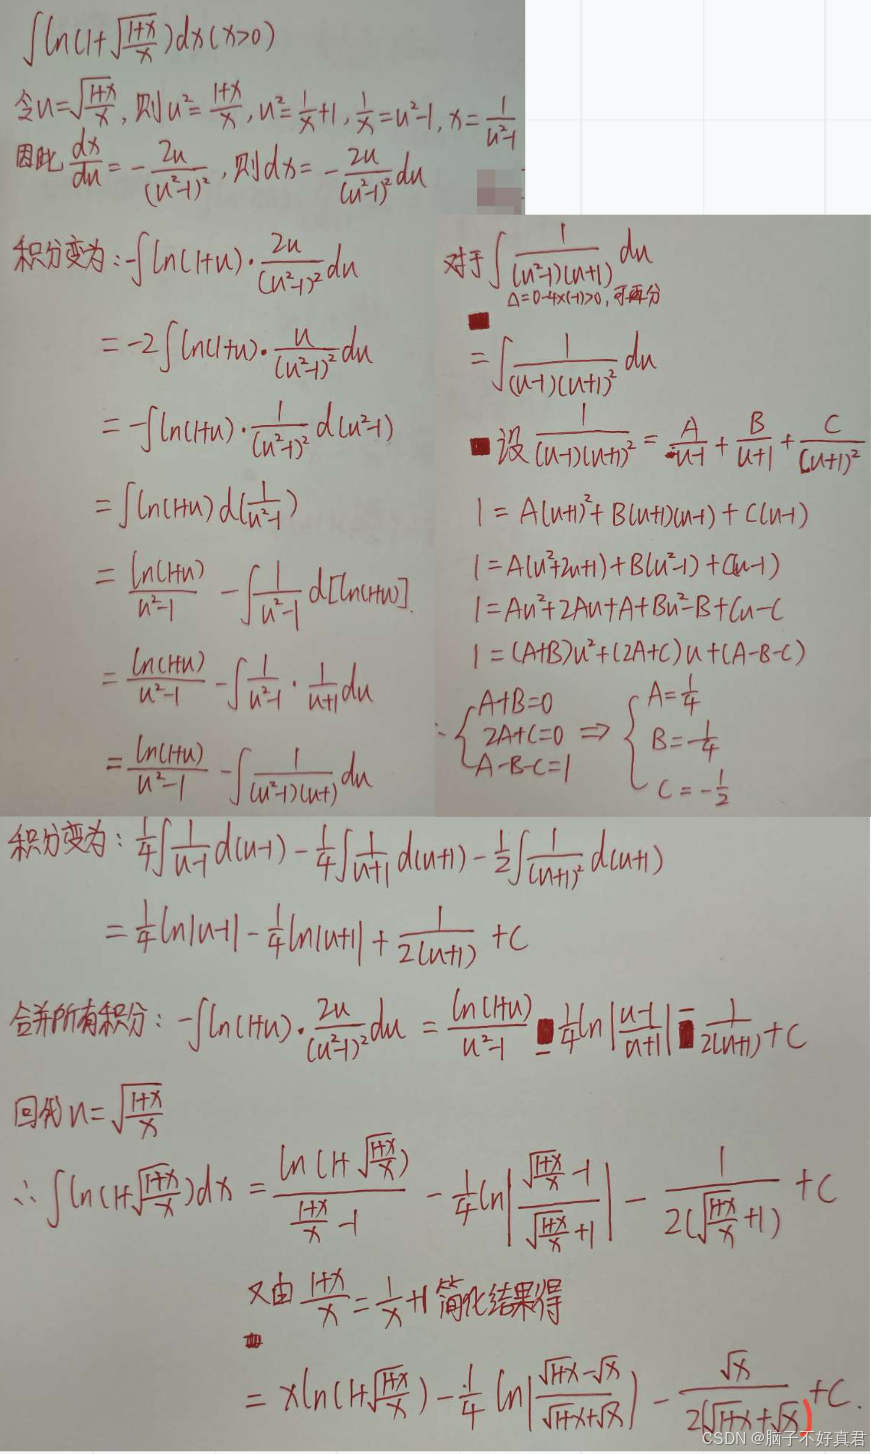 ∫ln(1+√((1+x)/x))dx(x>0)
令u=√((1+x)/x), 则u²=(1+x)/x, u²=1/x+1, 1/x=u²-1, x=1/(u²-1)
因此 dx/du=-2u/(u²-1)², 则dx=-2u/(u²-1)² du
积分变为:-∫ln(1+u)·2u/(u²-1)² du
=-2∫ln(1+u)·u/(u²-1)² du
=-∫ln(1+u)·1/(u²-1)² d(u²-1)
=∫ln(1+u)d(1/(u²-1))
=ln(1+u)/(u²-1) -∫1/(u²-1) d[ln(1+u)].
=ln(1+u)/(u²-1) -∫1/(u²-1)·1/(u+1) du
=ln(1+u)/(u²-1) -∫1/((u²-1)(u+1)) du
对于∫1/((u²-1)(u+1)) du
Δ=0-4×(-1)>0, 可再分
=∫1/((u-1)(u+1)²) du
设 1/((u-1)(u+1)²)=A/(u-1)+B/(u+1)+C/(u+1)²
1=A(u+1)²+B(u+1)(u-1)+C(u-1)
1=A(u²+2u+1)+B(u²-1)+C(u-1)
1=Au²+2Au+A+Bu²-B+Cu-C
1=(A+B)u²+(2A+C)u+(A-B-C)
∴ { A+B=0 ⇒ { A=1/4
2A+C=0 B=-1/4
A-B-C=1 C=-1/2
积分变为: 1/4∫1/(u-1) d(u-1)-1/4∫1/(u+1) d(u+1)-1/2∫1/(u+1)² d(u+1)
=1/4 ln|u-1|-1/4 ln|u+1|+1/(2(u+1))+C
合并所有积分: -∫ln(1+u)·2u/(u²-1)² du=ln(1+u)/(u²-1)-1/4 ln|(u-1)/(u+1)|-1/(2(u+1))+C
回代u=√((1+x)/x)
∴∫ln(1+√((1+x)/x))dx=ln(1+√((1+x)/x))/((1+x)/x-1)-1/4 ln|(√((1+x)/x)-1)/(√((1+x)/x)+1)|-1/(2(√((1+x)/x)+1))+C
又由(1+x)/x=1/x+1简化结果得
=xln(1+√((1+x)/x))-1/4 ln|(√(1+x)-√x)/(√(1+x)+√x)|-√x/(2(√(1+x)+√x))+C.
CSDN @脑子不好真君